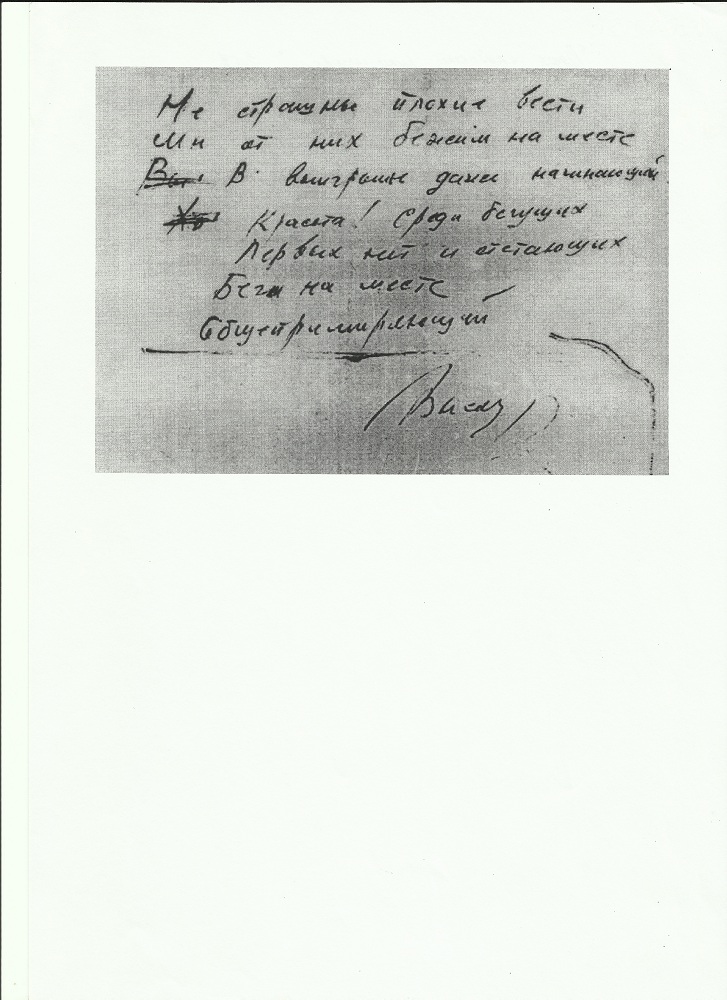 Не страшны плохие вести
Мы от них бежим на месте
Вы В выигрыше даже начинающий
Красота! Среди бегущих
Первых нет и отстающих
Бег на месте
Общепримиряющий
Высоц